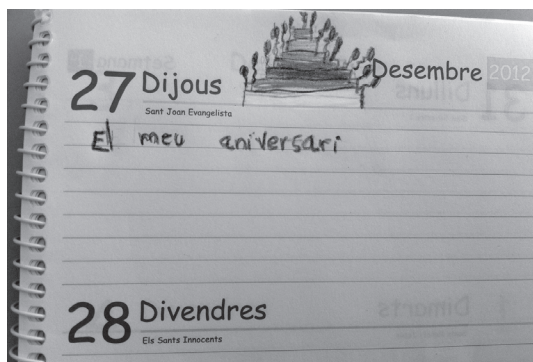 27 Dijous Desembre 2012
Sant Joan Evangelista
El meu aniversari
28 Divendres
Els Sants Innocents